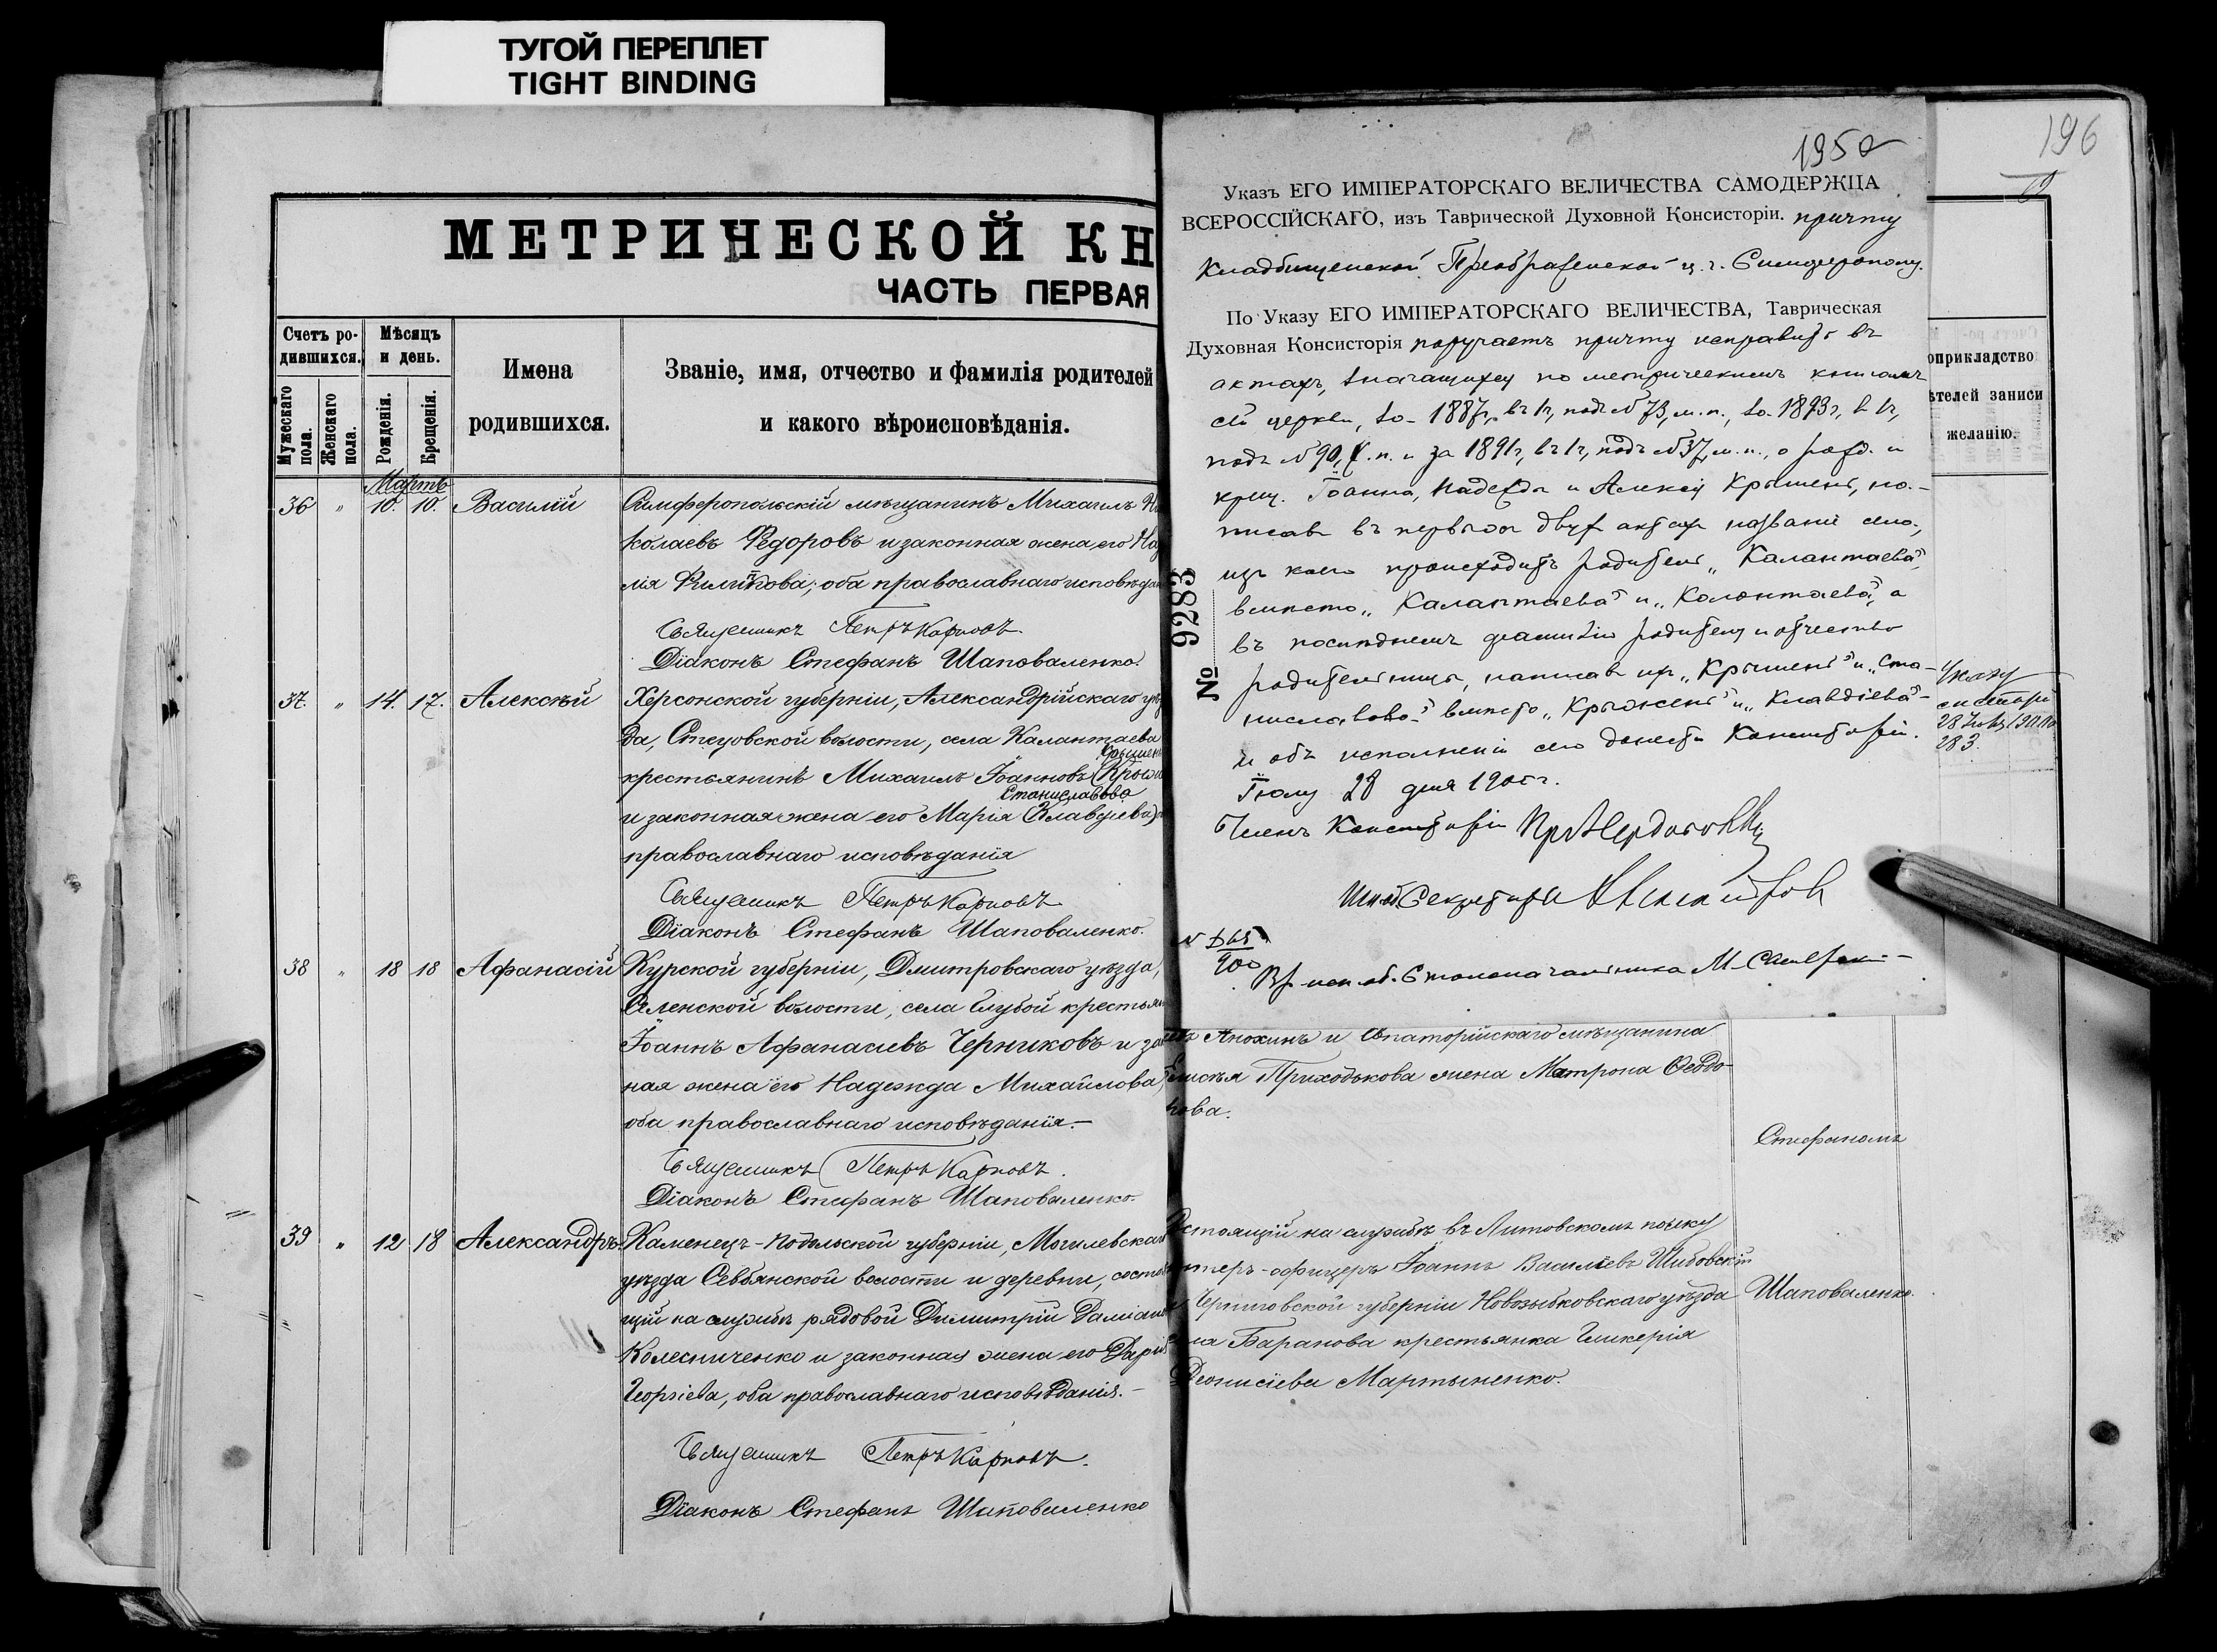 ТУГОЙ ПЕРЕПЛЕТ
TIGHT BINDING
МЕТРИЧЕСКОЙ КН
ЧАСТЬ ПЕРВАЯ
Счетъ ро-
дившихся.
Мѣсяцъ
и день.
Мужескаго
пола.
Женскаго
пола.
Рожденія.
Крещенія.
Имена
родившихся.
Званіе, имя, отчество и фамилія родителей
и какого вѣроисповѣданія.
Мартъ
36 " 10. 10. Василій Симферопольскій мѣщанинъ Михаилъ Ни
колаевъ Федоровъ и законная жена его
оба православнаго исповѣдан
Священникъ Петръ Карповъ
Діаконъ Стефанъ Шаповаленко.
37. " 14. 17. Алексѣй Херсонской губерніи, Александрійскаго уѣз
да, Стецовской волости, села Калантаева
Крышенъ
крестьянинъ Михаилъ Іоанновъ (Крыж
Станиславова
и законная жена его Марія (Клавдіева)
православнаго исповѣданія
Священникъ Петръ Карповъ
Діаконъ Стефанъ Шаповаленко.
38 " 18 18 Афанасій Курской губерніи, Дмитровскаго уѣзда,
волости, села крестьян
Іоаннъ Афанасіевъ Черниковъ и зак
ная жена его Надежда Михайлова,
оба православнаго исповѣданія.—
Священникъ Петръ Карповъ.
Діаконъ Стефанъ Шаповаленко.
39 " 12 18 Александръ. Каменецъ-Подольской губерніи, Могилевскаг
уѣзда волости и деревни, состоя
щій на службѣ рядовой Димитрій Даміан
Колесниченко и законная жена его Дарія
Георгіева, оба православнаго исповѣданія.—
Священникъ Петръ Карповъ.
Діаконъ Стефанъ Шаповаленко
196
195
Указъ ЕГО ИМПЕРАТОРСКАГО ВЕЛИЧЕСТВА САМОДЕРЖЦА
ВСЕРОССІЙСКАГО, изъ Таврической Духовной Консисторіи. причту
Кладбищенской Преображенской ц. г. Симферополя.
По Указу ЕГО ИМПЕРАТОРСКАГО ВЕЛИЧЕСТВА, Таврическая
Духовная Консисторія поручаетъ причту исправить въ
актахъ, значащихся по метрическимъ книгамъ
сей церкви, за 1887г., въ 1ч, подъ № 73, м. п., за 1893г, въ 1ч,
подъ № 90, ж. п. и за 1891г, въ 1ч, подъ № 37, м. п., о рожд. и
крещ. Іоанна, Надежды и Алексія Крышенъ, на-
писавъ въ первыхъ двухъ актахъ названіе села,
изъ коего происходитъ родитель „Калантаева",
вмѣсто „Калантаева" и „Колонтаева", а
въ послѣднемъ фамилію родителя и отчество
родительницы, написавъ их „Крышенъ" и „Ста-
ниславова" вмѣсто „Крыженъ" и „Клавдіева"—
и объ исполненіи сего донести Консисторіи.
Іюля 28 дня 1900г.
Членъ Консисторіи
Секретарь
№ 9283
900
Вр. исп. об. Столоначальника М.
оприкладство
ѣтелей записи
желанію.
Указу
28 1900
283
Анохинъ и Евпаторійскаго мѣщанина
Приходькова жена Матрона Ѳедо-
рова.
Стефаномъ
Состоящій на службѣ въ Литовскомъ полку
унтеръ-офицеръ Іоаннъ Василіевъ Шибовскій
Черниговской губерніи Новозыбковскаго уѣзда
Шаповаленко.
села Баранова крестьянка Гликерія
Діонисіева Мартыненко.